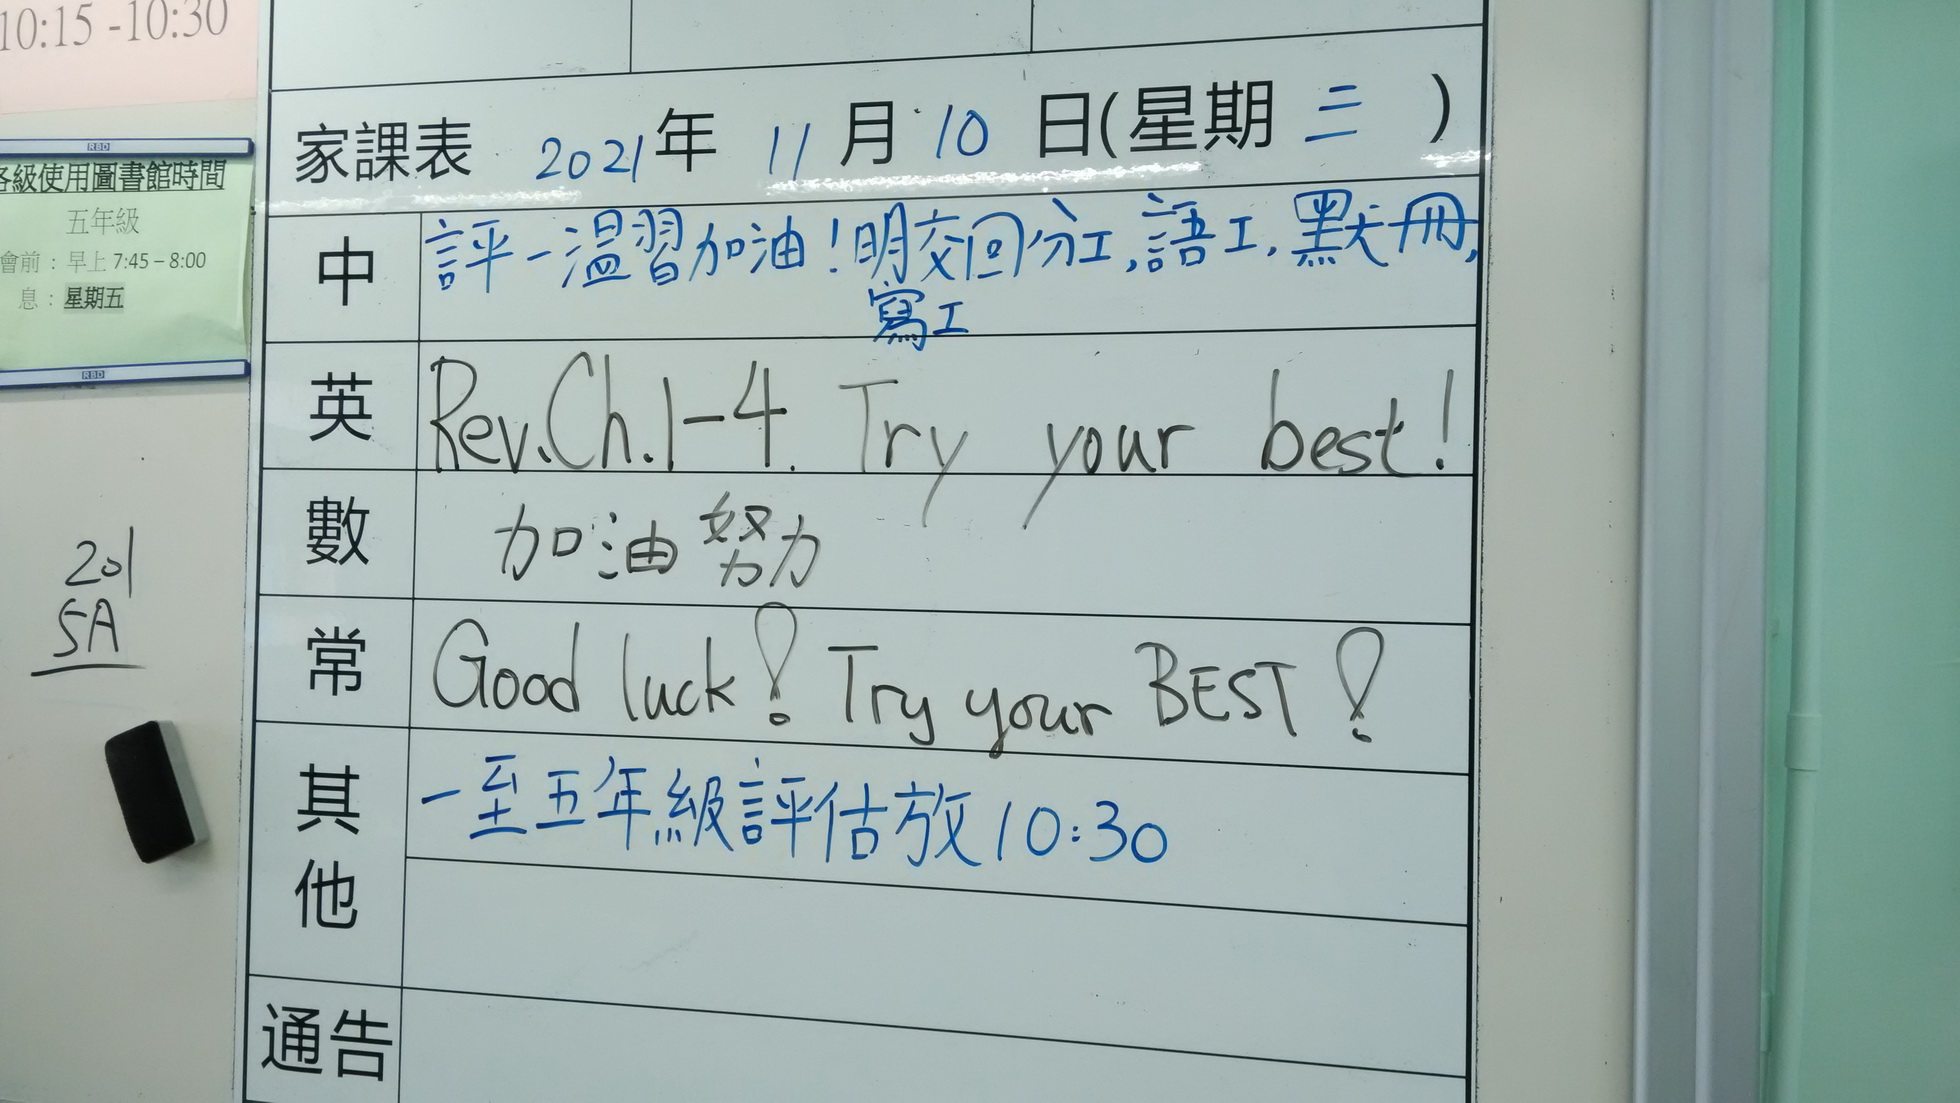 10:15 -10:30
RBD
各級使用圖書館時間
五年級
會前：早上 7:45 – 8:00
息：星期五
RBD
201
5A
家課表 2021年 11月 10日(星期 三 )
中 評一溫習加油！明交回分工,語工,默冊,
寫工
英 Rev.Ch.1-4. Try your best!
數 加油努力
常 Good luck! Try your BEST!
其他 一至五年級評估放10:30
通告